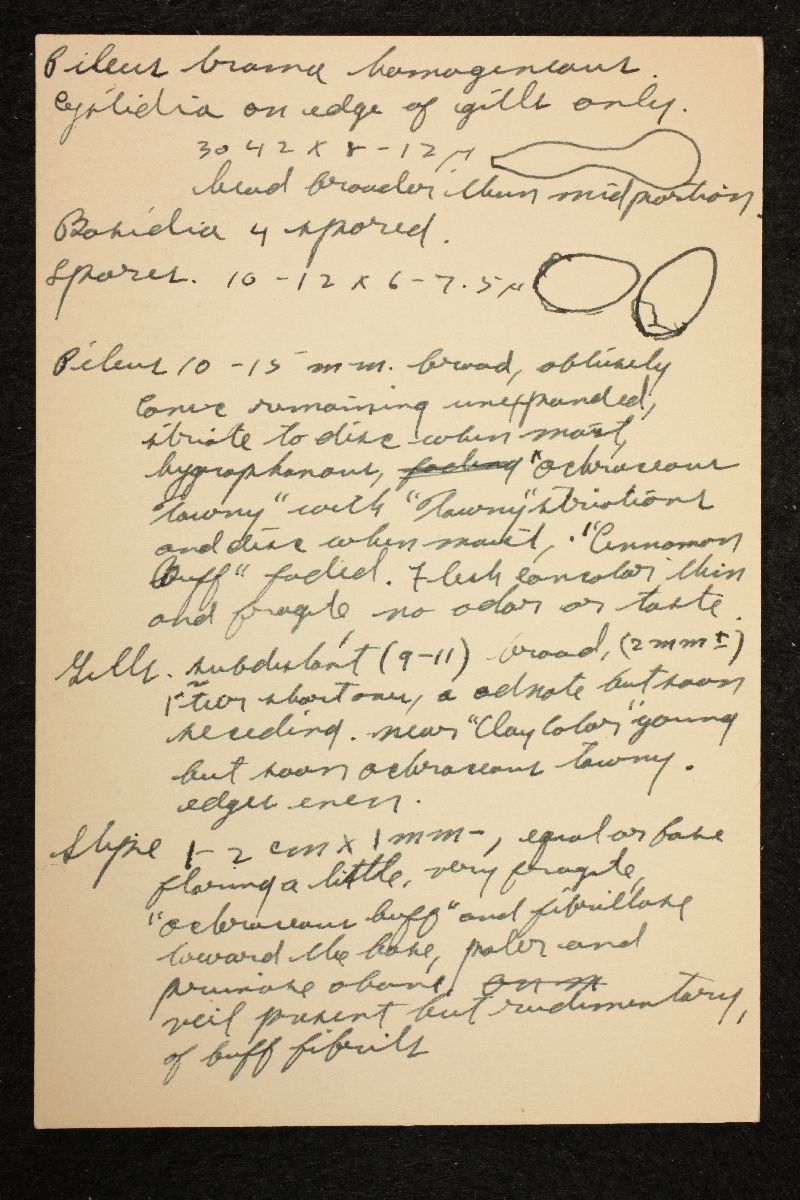 Pileus trama homogeneous.
Cystidia on edge of gills only.
30 42 x 8-12 μ
head broader than midportion.
Basidia 4 spored.
Spores. 10-12 x 6-7.5 μ
Pileus 10-15 mm. broad, obtusely
conic remaining unexpanded,
striate to disc when moist,
hygrophanous, fading "ochraceous
tawny" with "Tawny" striations
and disc when moist, "Cinnamon
Buff" faded. Flesh concolor thin
and fragile, no odor or taste.
Gills. subdistant (9-11) broad, (2 mm ±)
1 tier short ones, a adnate but soon
seceding. near "Clay Color" young
but soon ochraceous tawny.
edges even.
Stipe 1-2 cm x 1 mm-, equal or base
flaring a little, very fragile,
"ochraceous buff" and fibrillose
toward the base, paler and
pruinose above,
veil present but rudimentary,
of buff fibrils